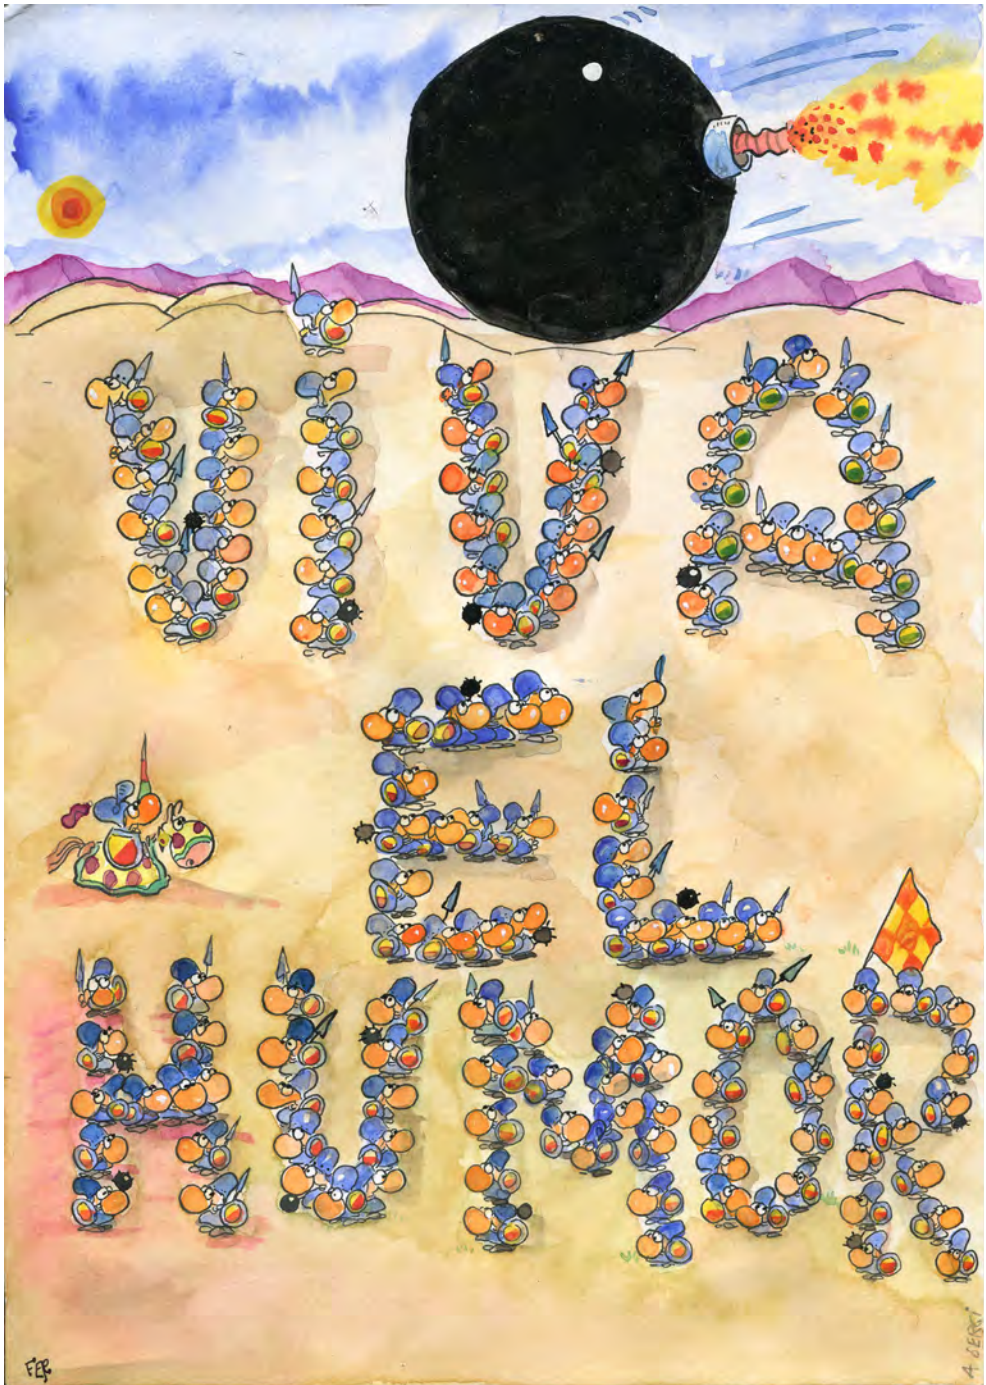 VIVA
EL
HUMOR
FER
A SERGI